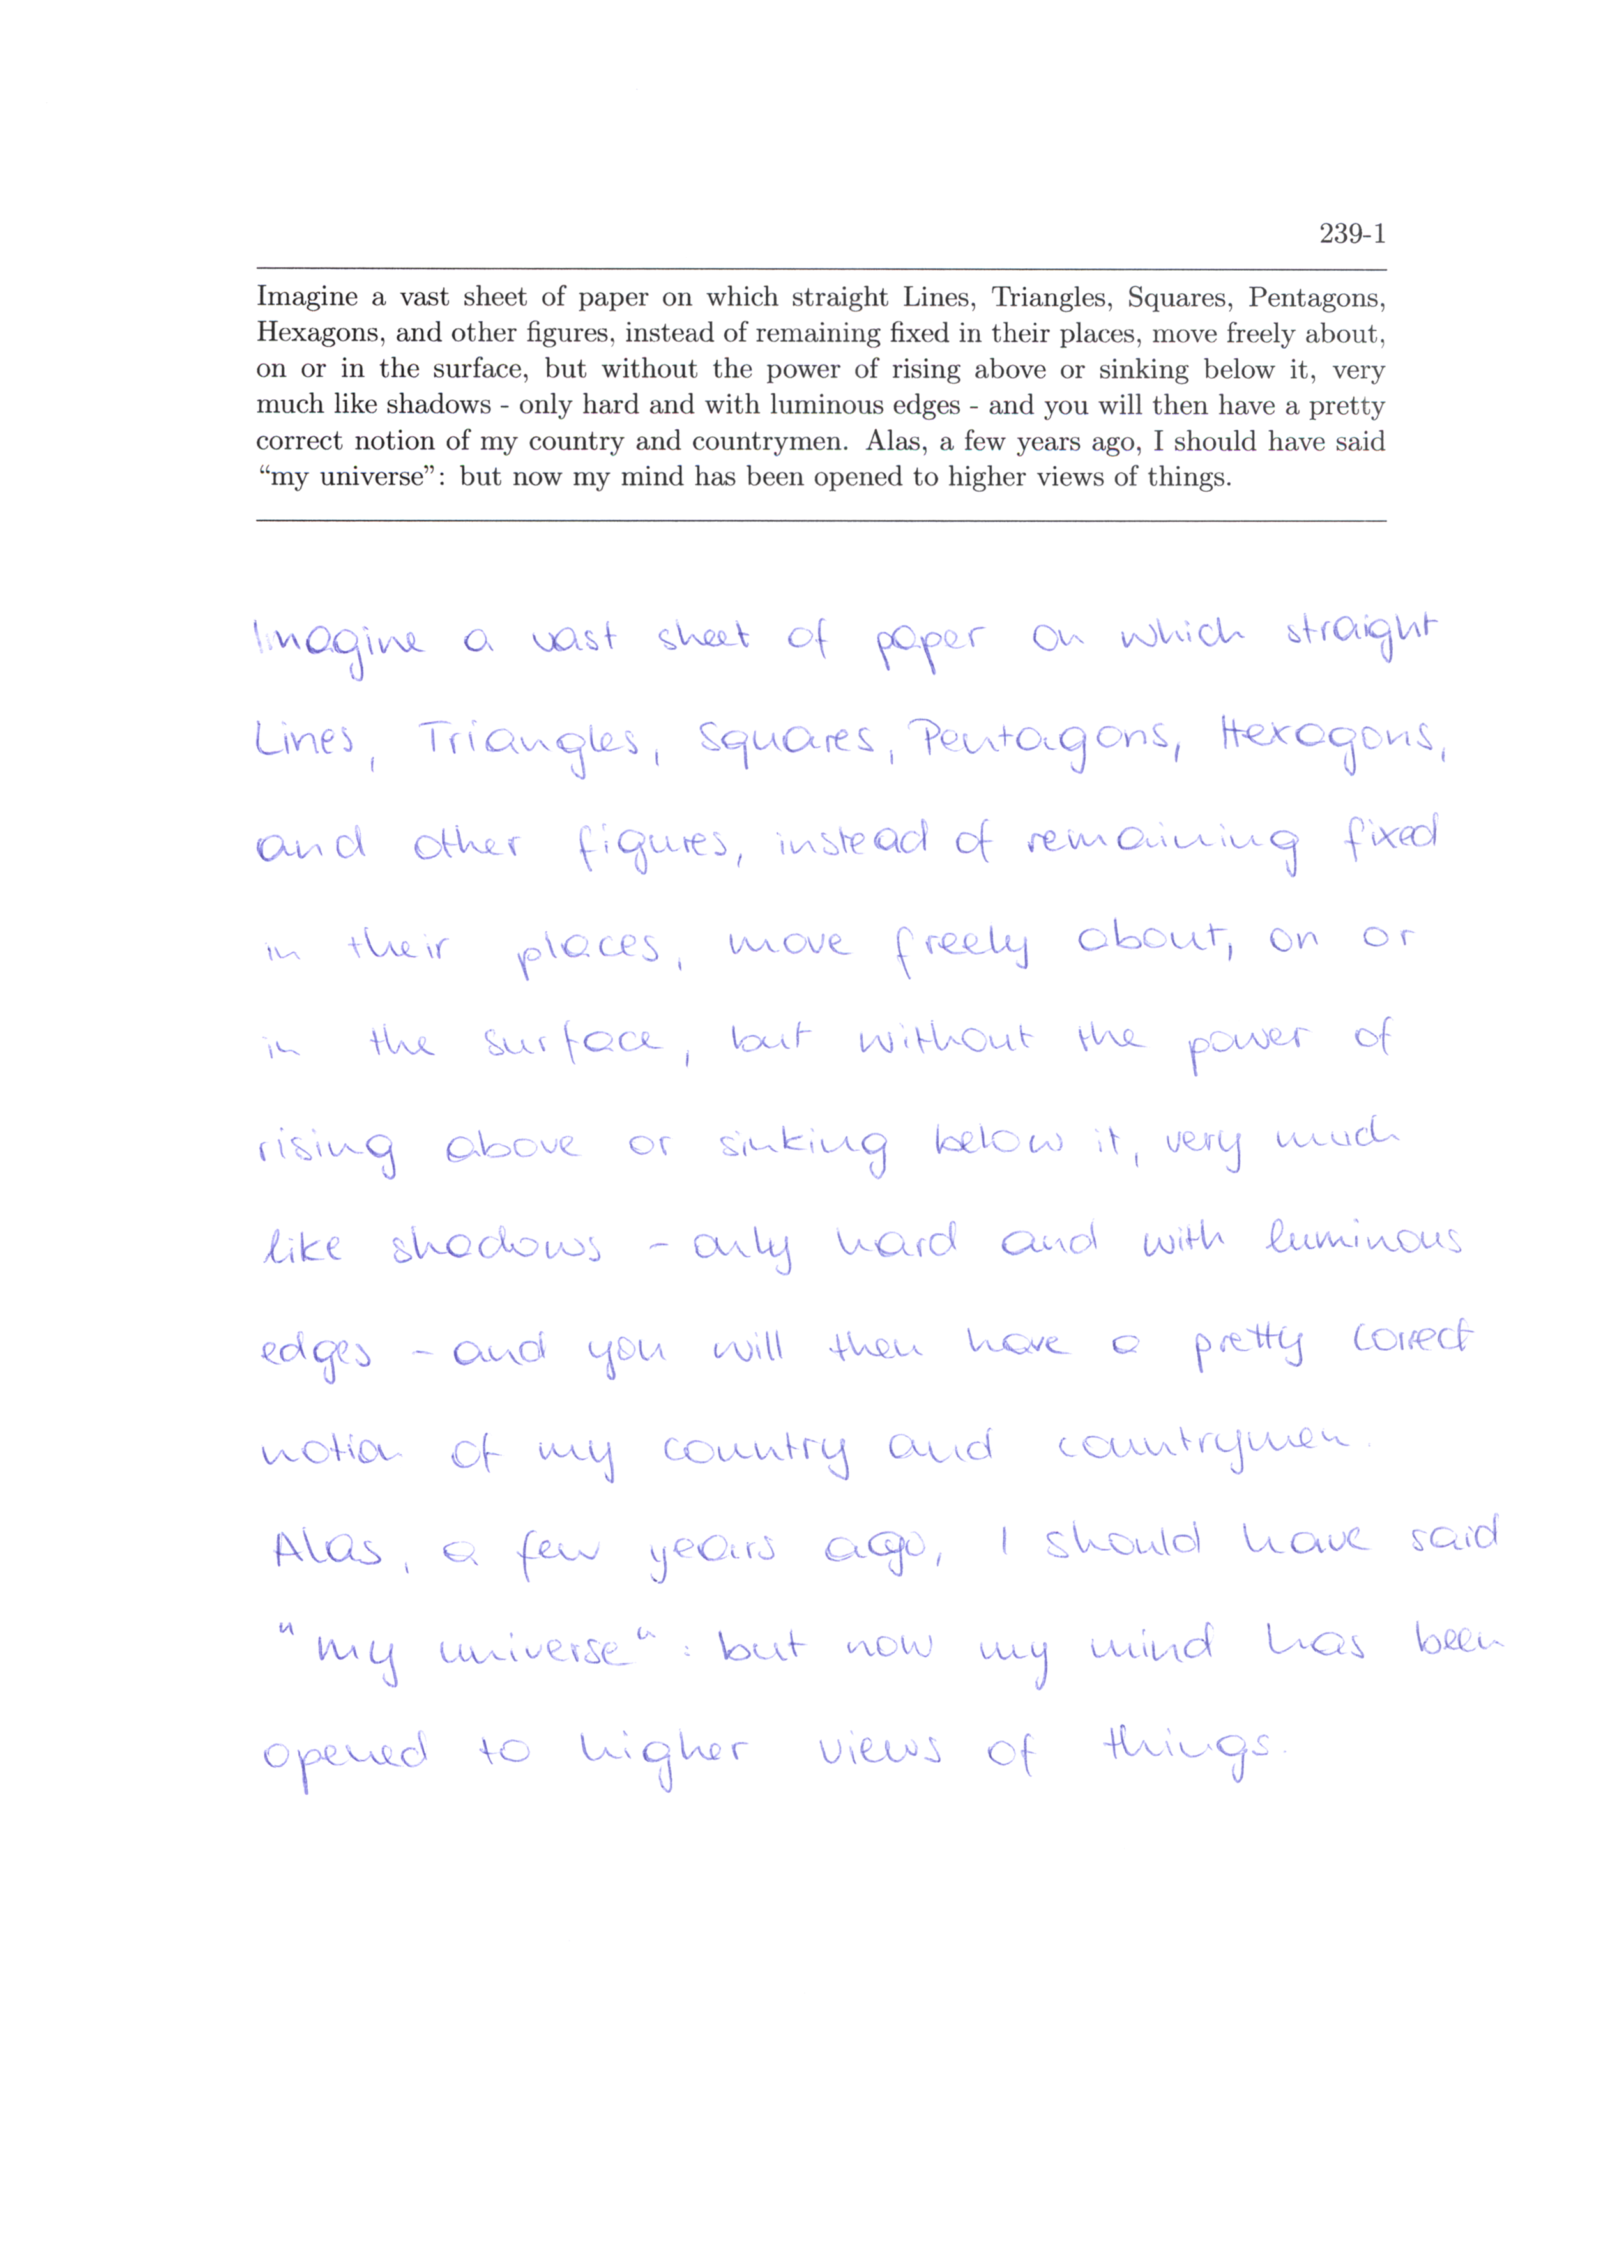 239-1
Imagine a vast sheet of paper on which straight Lines, Triangles, Squares, Pentagons,
Hexagons, and other figures, instead of remaining fixed in their places, move freely about,
on or in the surface, but without the power of rising above or sinking below it, very
much like shadows - only hard and with luminous edges - and you will then have a pretty
correct notion of my country and countrymen. Alas, a few years ago, I should have said
“my universe”: but now my mind has been opened to higher views of things.
Imagine a vast sheet of paper on which straight
Lines, Triangles, Squares, Pentagons, Hexagons,
and other figures, instead of remaining fixed
in their places, move freely about, on or
in the surface, but without the power of
rising above or sinking below it, very much
like shadows - only hard and with luminous
edges - and you will then have a pretty correct
notion of my country and countrymen.
Alas, a few years ago, I should have said
"my universe": but now my mind has been
opened to higher views of things.